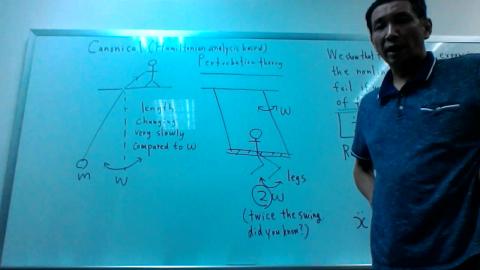 Canonical (Hamiltonian analysis based)
Perturbation theory
length
changing
very slowly
compared to ω
m
ω
ω
legs
2ω
(twice the swing
did you know?)
We show that
the nonlin
fail if
of
ẍ